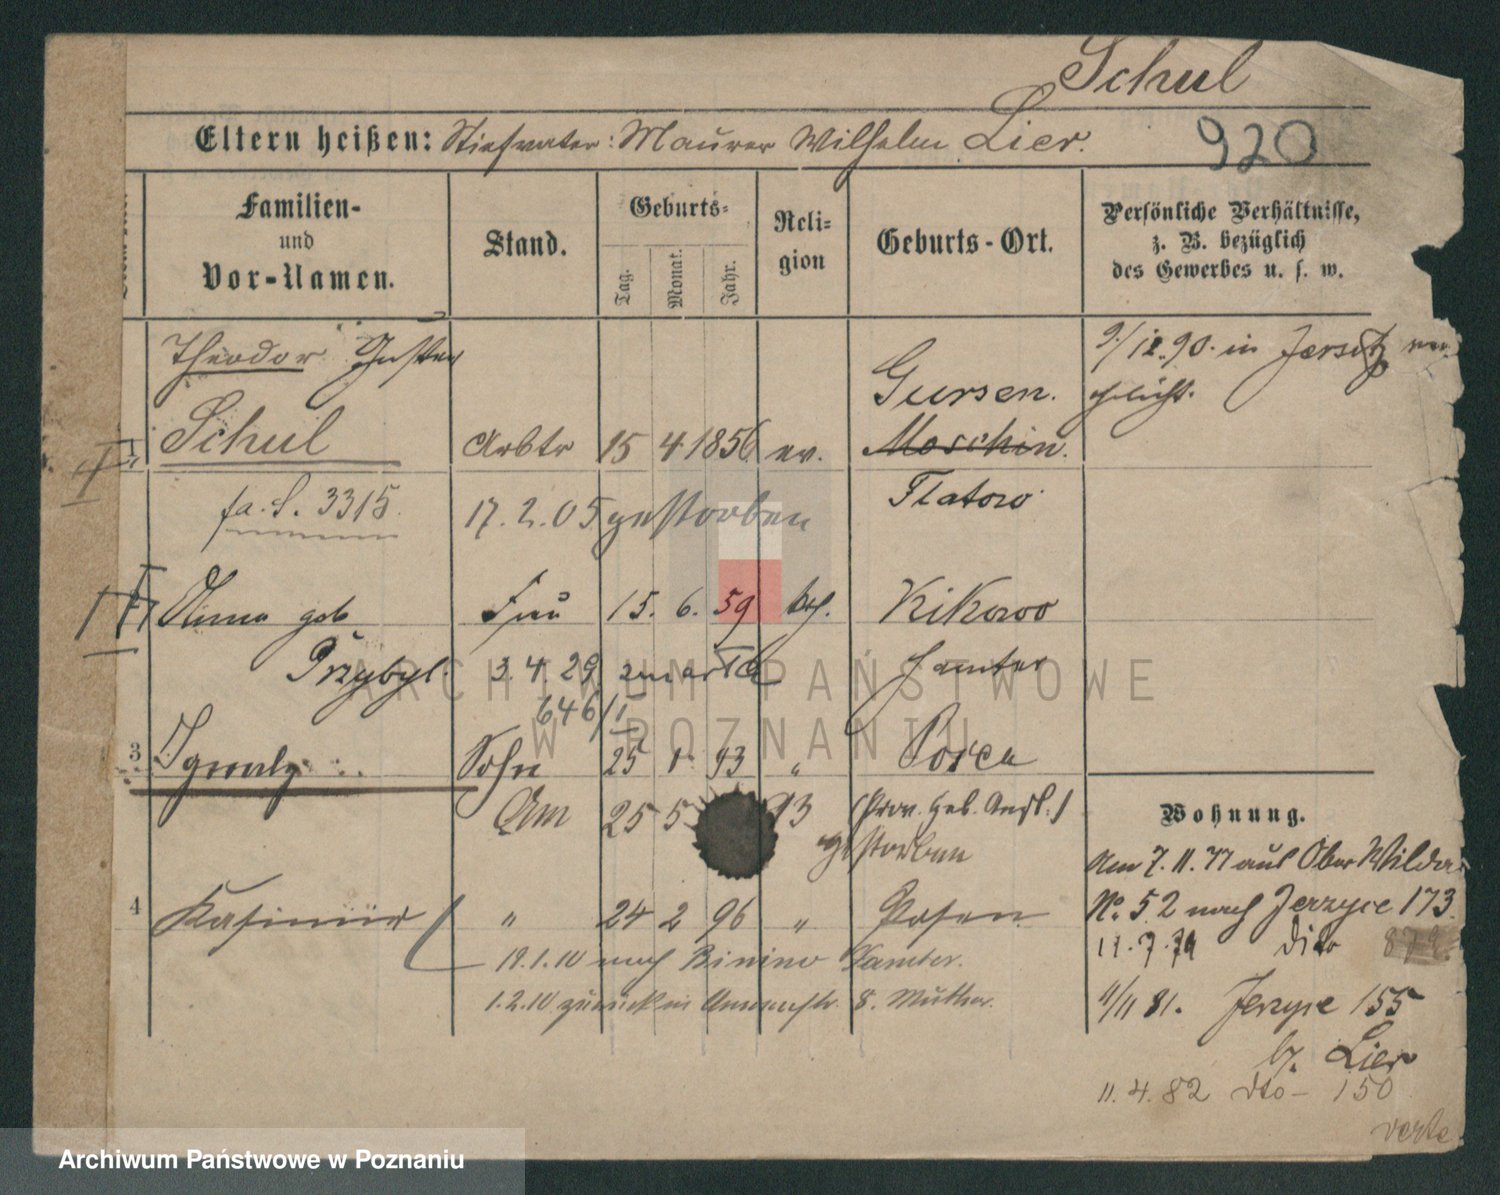 Schul
Eltern heißen: Stiefvater: Maurer Wilhelm Lier.
920
Familien-
und
Vor-Namen.
Stand.
Geburts-
Tag.
Monat.
Jahr.
Reli-
gion
Geburts-Ort.
Persönliche Verhältnisse,
z. B. bezüglich
des Gewerbes u. s. w.
Theodor Gustav
Schul Arbtr 15 4 1856 ev.
Gursen.
Moschin.
Flatow
9/12.90. in Jersitz
fa. S. 3315. 17.2.05 gestorben
Anna geb. Frau 15. 6. 59 kth. Kikowo
Przybyl. 3.4.29 zmarła Samter
646/I
3 Ignatz Sohn 25 93 " Posen
Am 25 5 93 gestorben
4 Kasimir " 24 2 96 " Posen
19.1.10 nach Binino Samter.
1.2.10 zurück z. Mutter.
Wohnung.
Am 7.11.77 aus Ober Wilda
No. 52 nach Jerzyce 173.
11.7.79 dito 872
4/11 81. Jerzyce 155
b. Lier
11.4.82 dto – 150
verte
Archiwum Państwowe w Poznaniu
ARCHIWUM PAŃSTWOWE
W POZNANIU